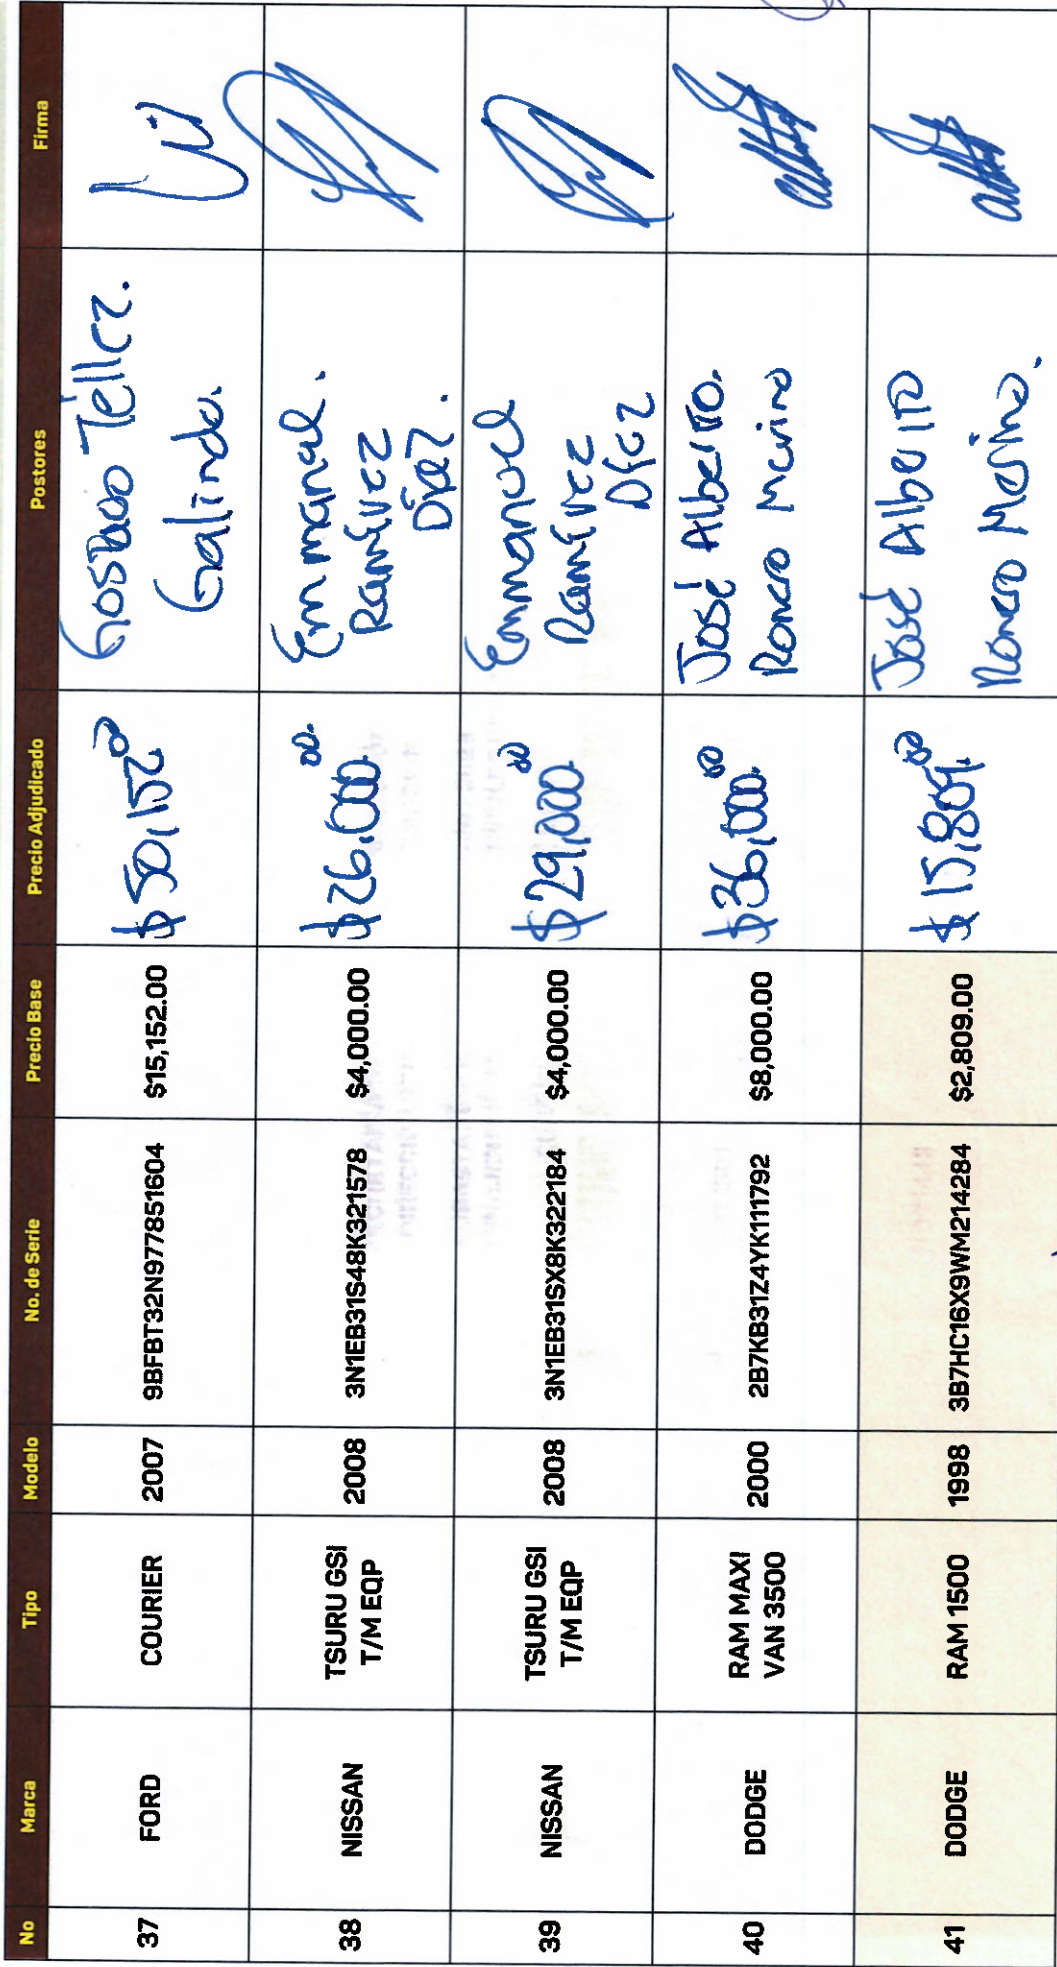 No Marca Tipo Modelo No. de Serie Precio Base Precio Adjudicado Postores Firma
37 FORD COURIER 2007 9BFBT32N977851604 $15,152.00 $50,152.00 Gostavo Téllez.
Galindo.
38 NISSAN TSURU GSI
T/M EQP 2008 3N1EB31S48K321578 $4,000.00 $26,000.00. Emmanuel.
Ramírez
Díaz.
39 NISSAN TSURU GSI
T/M EQP 2008 3N1EB31SX8K322184 $4,000.00 $29,000.00 Emmanuel
Ramírez
Díaz
40 DODGE RAM MAXI
VAN 3500 2000 2B7KB31Z4YK111792 $8,000.00 $36,000.00 José Alberto.
Romero Merino
41 DODGE RAM 1500 1998 3B7HC16X9WM214284 $2,809.00 $15,809.00 José Alberto
Romero Merino.